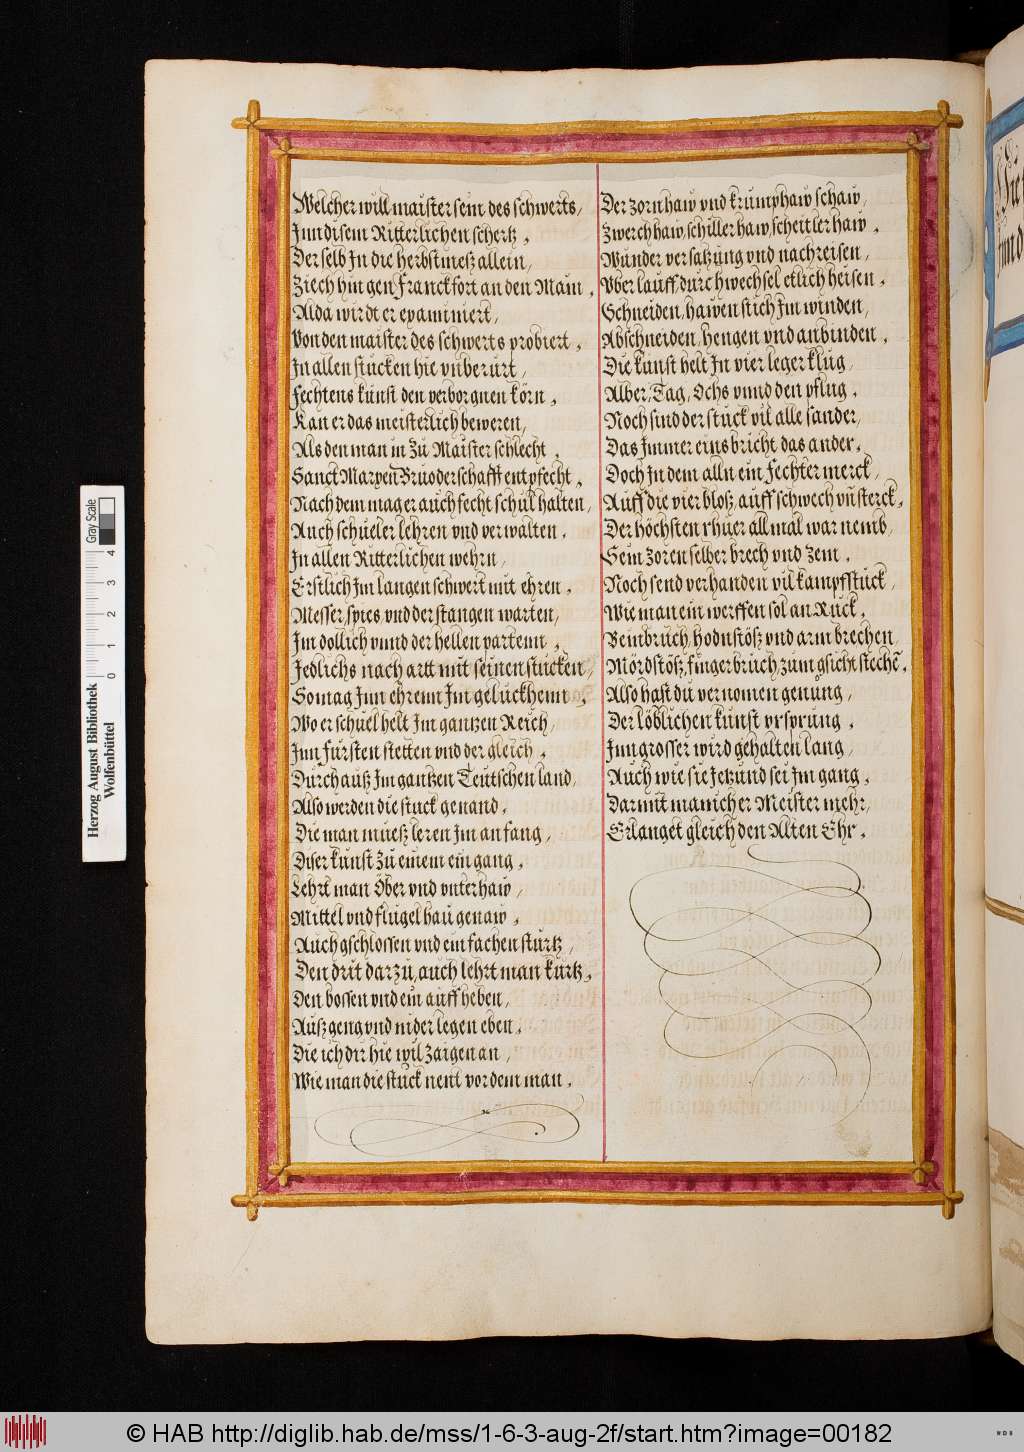 Welcher will maister sein des schwerts,
Inn disem Ritterlichen schertz,
Der selb In die herbstmesz allein,
Ziech hin gen Franckfort an den Main,
Alda wirdt er examiniert,
Von den maister des schwerts probiert,
In allen stucken hie vnberurt,
Fechtens kunst den verborgnen körn,
Kan er das meisterlich beweren,
Als den man in Zu Maister schlecht,
Sanct Marxen Bruoderschafft entpfecht,
Nach dem mag er auch fecht schul halten,
Auch schueler lehren vnd verwalten,
In allen Ritterlichen wehrn,
Erstlich Im langen schwert mit ehren,
Messer, spies vnd der stangen warten,
Im dollich vnnd der hellen partenn,
Jedlichs nach artt mit seinen stucken,
So mag Inn ehrenn Im geluckhenn,
Wo er schuel helt Im gantzen Reich,
Inn fursten stetten vnd der gleich,
Durch aufz Im gantzen Teutschen land,
Also werden die stuck genand,
Die man muesz leren Im anfang,
Diser kunst Zu einem eingang,
Lehrt man Öber vnd vnterhaw,
Mittel vnd flugel hau genaw,
Auch gschlossen vnd einfachen sturtz,
Den drit darzu, auch lehrt man kurtz,
Den bossen vnd ein auffheben,
Aufz geng vnd niderlegen eben,
Die ich dir hie wil Zaigen an,
Wie man die stuck nent vor dem man,
Der zornhaw vnd krumphaw schaw,
Zwerchhaw, schillerhaw, scheitlerhaw,
Wunder versatzung vnd nachreisen,
Vberlauff, durchwechsel etlich heisen,
Schneiden, hawen stich Im winden,
Abschneiden, hengen vnd anbinden,
Die kunst helt In vier leger klug,
Alber, Tag, Ochs vnnd den pflug,
Noch sind der stuck vil alle sander,
Das Immer eins bricht das ander,
Doch In dem alln ein fechter merck,
Auff die vier blosz, auff schwech vn sterck,
Der höchsten rhuer allmal war nemb,
Sein zoren selber brech vnd Zem,
Noch send verhanden vil kampfstuck,
Wie man ein werffen sol an Ruck,
Beinbruch, hodnstösz vnd arm brechen,
Mördstösz, fingerbruch zum gsicht steche,
Also hast du vernomen genůng,
Der löblichen kunst vrsprung,
Inn grosser wird gehalten lang,
Auch wie sie Jetzund sei Im gang,
Darmit manicher Meister mehr,
Erlanget gleich den Alten Ehr,
Herzog August Bibliothek
Wolfenbüttel
Gray Scale
0 1 2 3 4
© HAB http://diglib.hab.de/mss/1-6-3-aug-2f/start.htm?image=00182